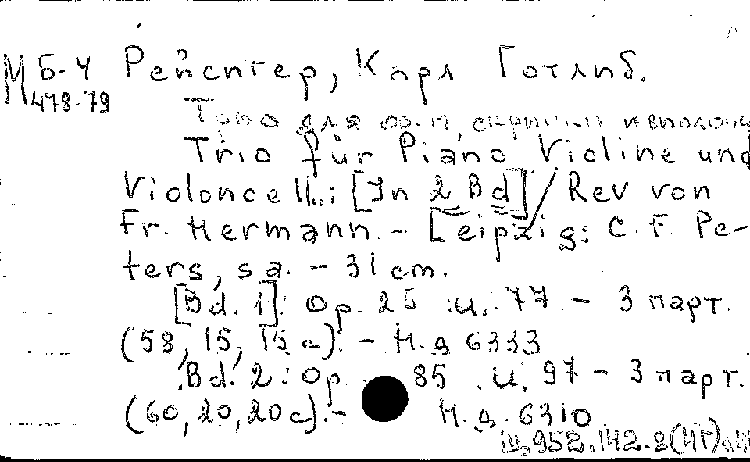 М Б-4 Рейсигер, Карл Готлиб.
478-79
Трио для ф.-п., скрипки и виолонч
Trio für Piano Violine und
Violoncell.: [In 2 Bd] / Rev von
Fr. Hermann. - Leipzig: C. F. Pe-
ters, s.a. - 31 cm.
[Bd. 1]: Op. 25 и. 77 - 3 парт.
(58, 15, 15 с). - Н.д. 6333
Bd. 2: Op. 85 и. 97 - 3 парт.
(60, 20, 20 с). - Н.д. 6310